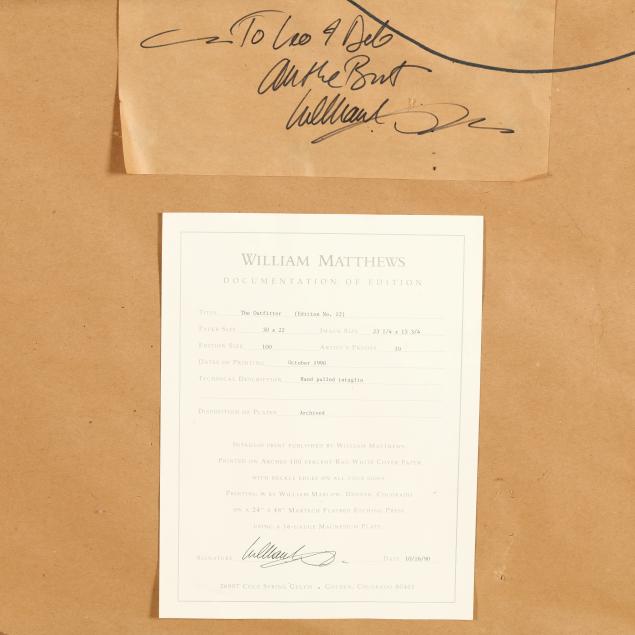 To Leo & Deb
All the Best
William
WILLIAM MATTHEWS
DOCUMENTATION OF EDITION
TITLE The Outfitter (Edition No. 12)
PAPER SIZE 30 x 22 IMAGE SIZE 23 1/4 x 15 3/4
EDITION SIZE 100 ARTIST'S PROOFS 10
DATES OF PRINTING October 1990
TECHNICAL DESCRIPTION Hand pulled intaglio
DISPOSITION OF PLATES Archived
INTAGLIO PRINT PUBLISHED BY WILLIAM MATTHEWS
PRINTED ON ARCHES 100 PERCENT RAG WHITE COVER PAPER
WITH DECKLE EDGES ON ALL FOUR SIDES
PRINTING BY WILLIAM MARLOW, DENVER, COLORADO
ON A 24" X 48" MARTECH FLATBED ETCHING PRESS
USING A 16-GAUGE MAGNESIUM PLATE.
SIGNATURE DATE 10/26/90
COLD SPRING GULCH • GOLDEN, COLORADO 80401